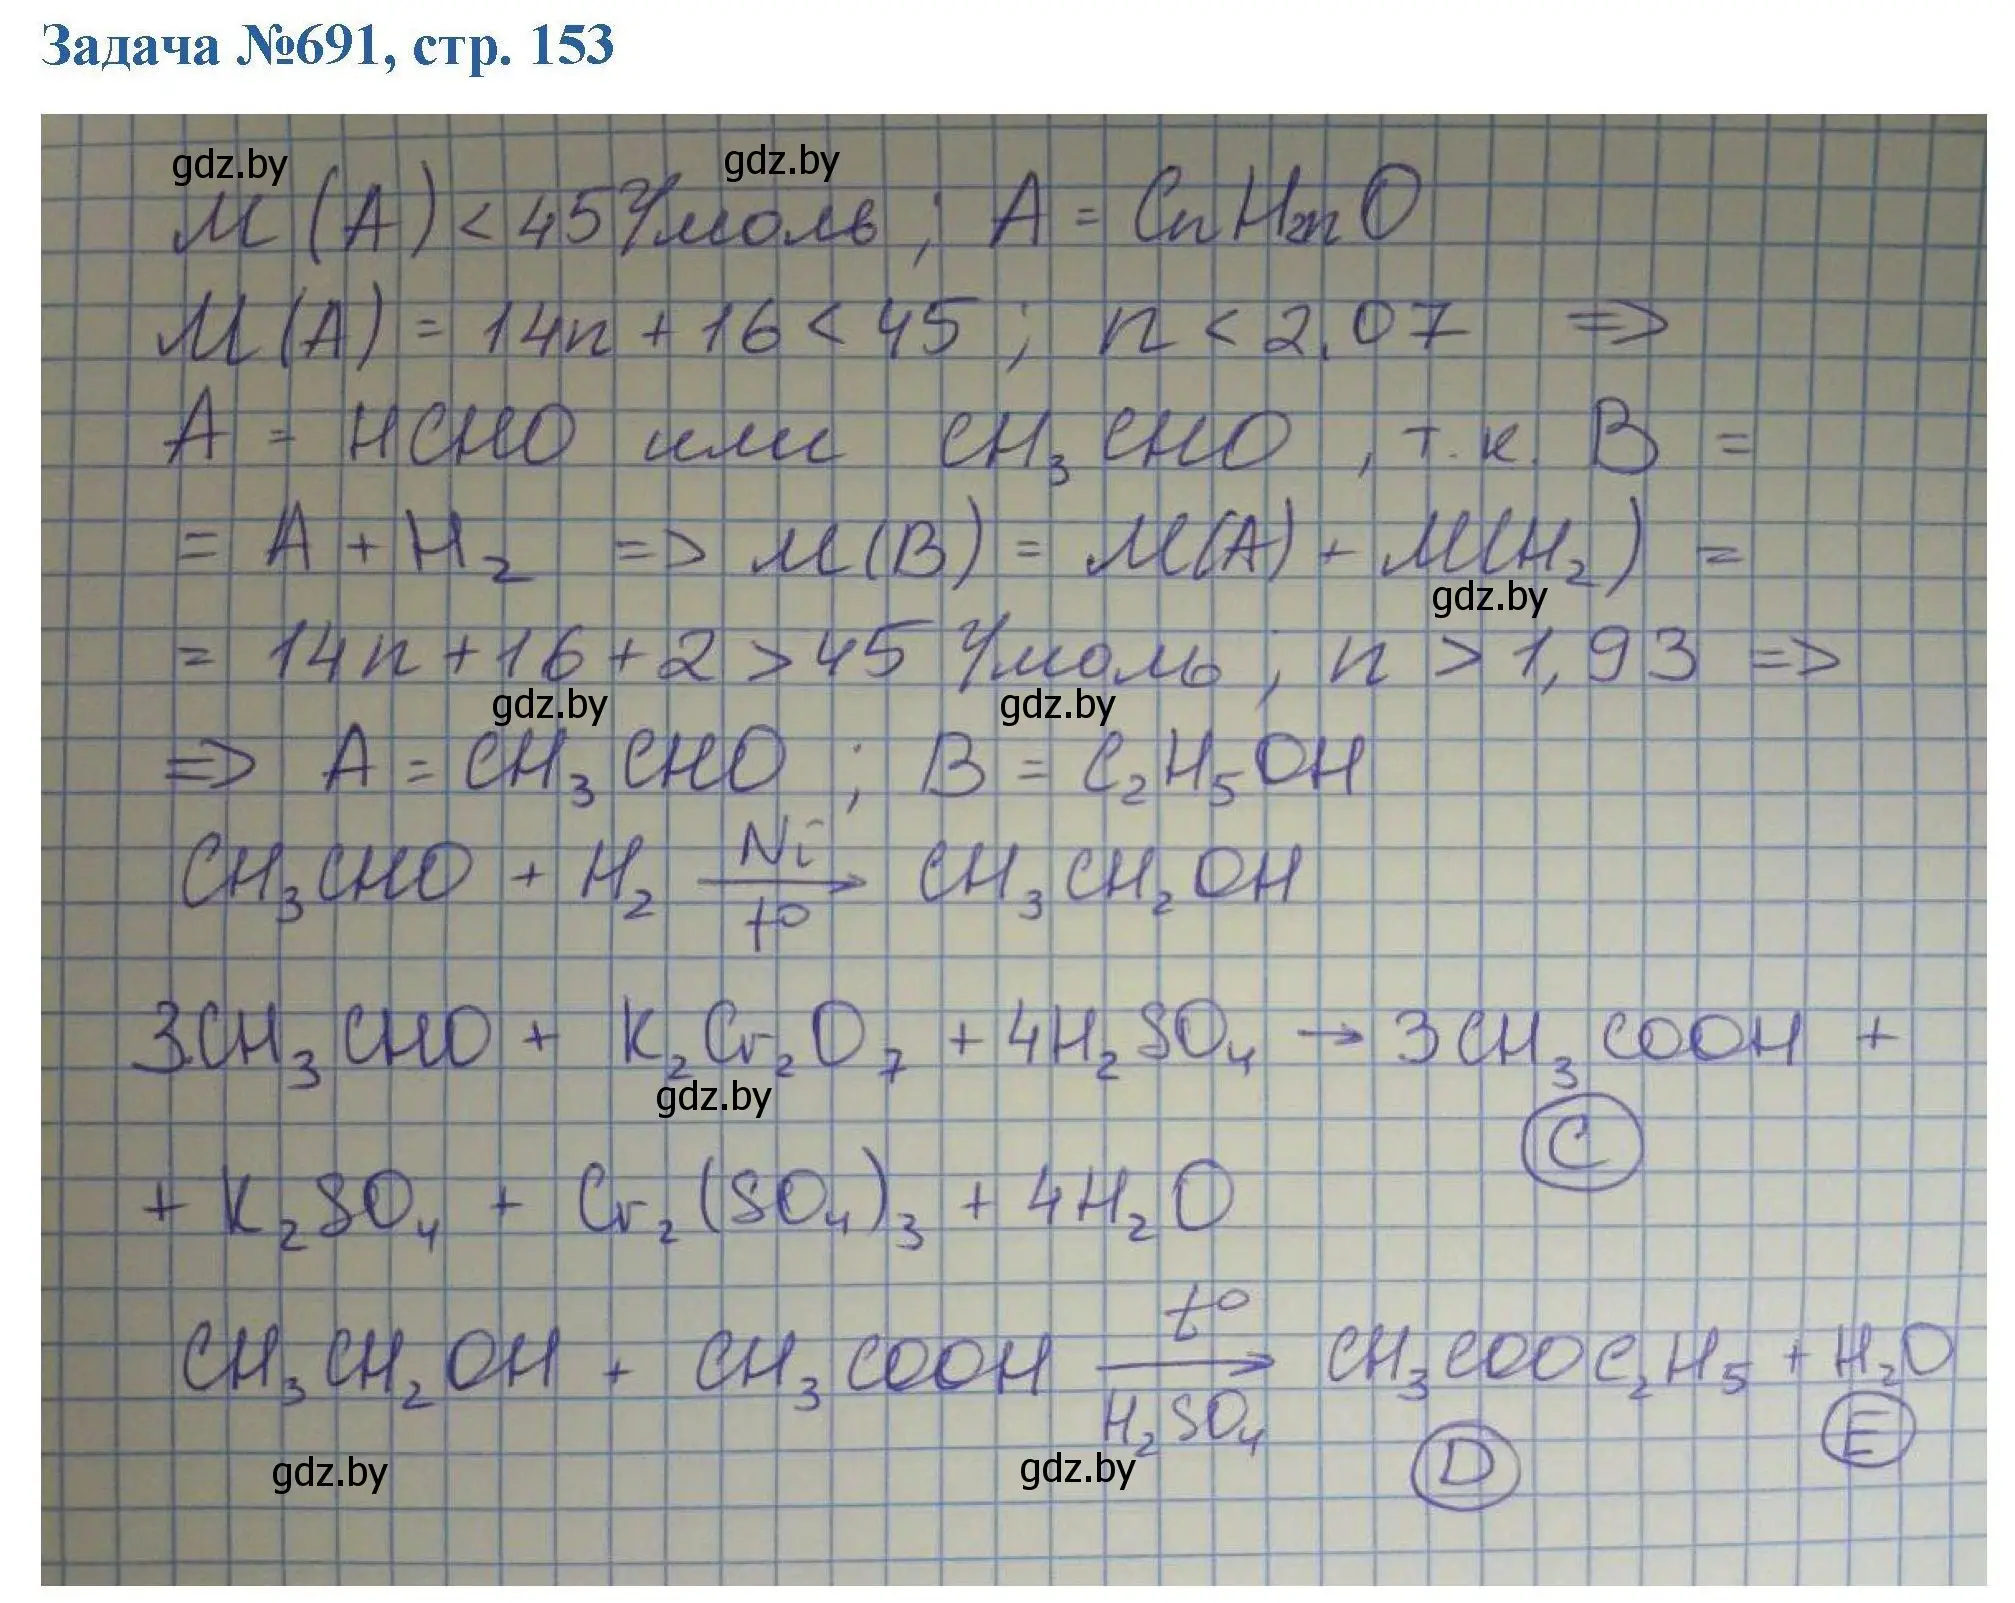 Задача №691, стр. 153
gdz.by gdz.by
M(A) < 45 г/моль ; A = CnH2nO
M(A) = 14n + 16 < 45 ; n < 2,07 =>
A = HCHO или CH3CHO , т.к. B =
= A + H2 => M(B) = M(A) + M(H2) =
gdz.by
= 14n + 16 + 2 > 45 г/моль ; n > 1,93 =>
gdz.by gdz.by
=> A = CH3CHO ; B = C2H5OH
CH3CHO + H2 Ni → t° CH3CH2OH
3CH3CHO + K2Cr2O7 + 4H2SO4 → 3CH3COOH +
gdz.by
C
+ K2SO4 + Cr2(SO4)3 + 4H2O
CH3CH2OH + CH3COOH t° → H2SO4 CH3COOC2H5 + H2O
D E
gdz.by gdz.by